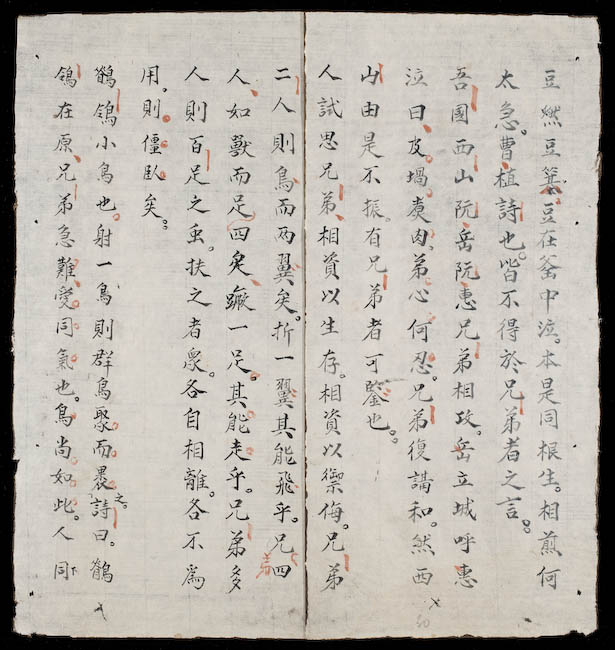 豆燃豆箕。豆在釜中泣。本是同根生。相煎何
太急。曹植詩也。皆不得於兄弟者之言。
吾國西山阮岳阮惠兄弟相攻。岳立城呼惠
泣曰。皮堝煑肉。弟心何忍。兄弟復講和。然西
山由是不振。有兄弟者可鑒也。
人試思兄弟。相資以生存。相資以禦侮。兄弟
二人則鳥而两翼矣。折一翼其能飛乎。兄弟四
人。如獸而足四矣。蹶一足。其能走乎。兄弟多
人則百足之虫。扶之者衆。各自相離。各不爲
用。則僵臥矣。
鶺鴒小鳥也。射一鳥則群鳥聚而畏之。詩曰。鶺
鴒在原。兄弟急難。愛同氣也。鳥尚如此。人同